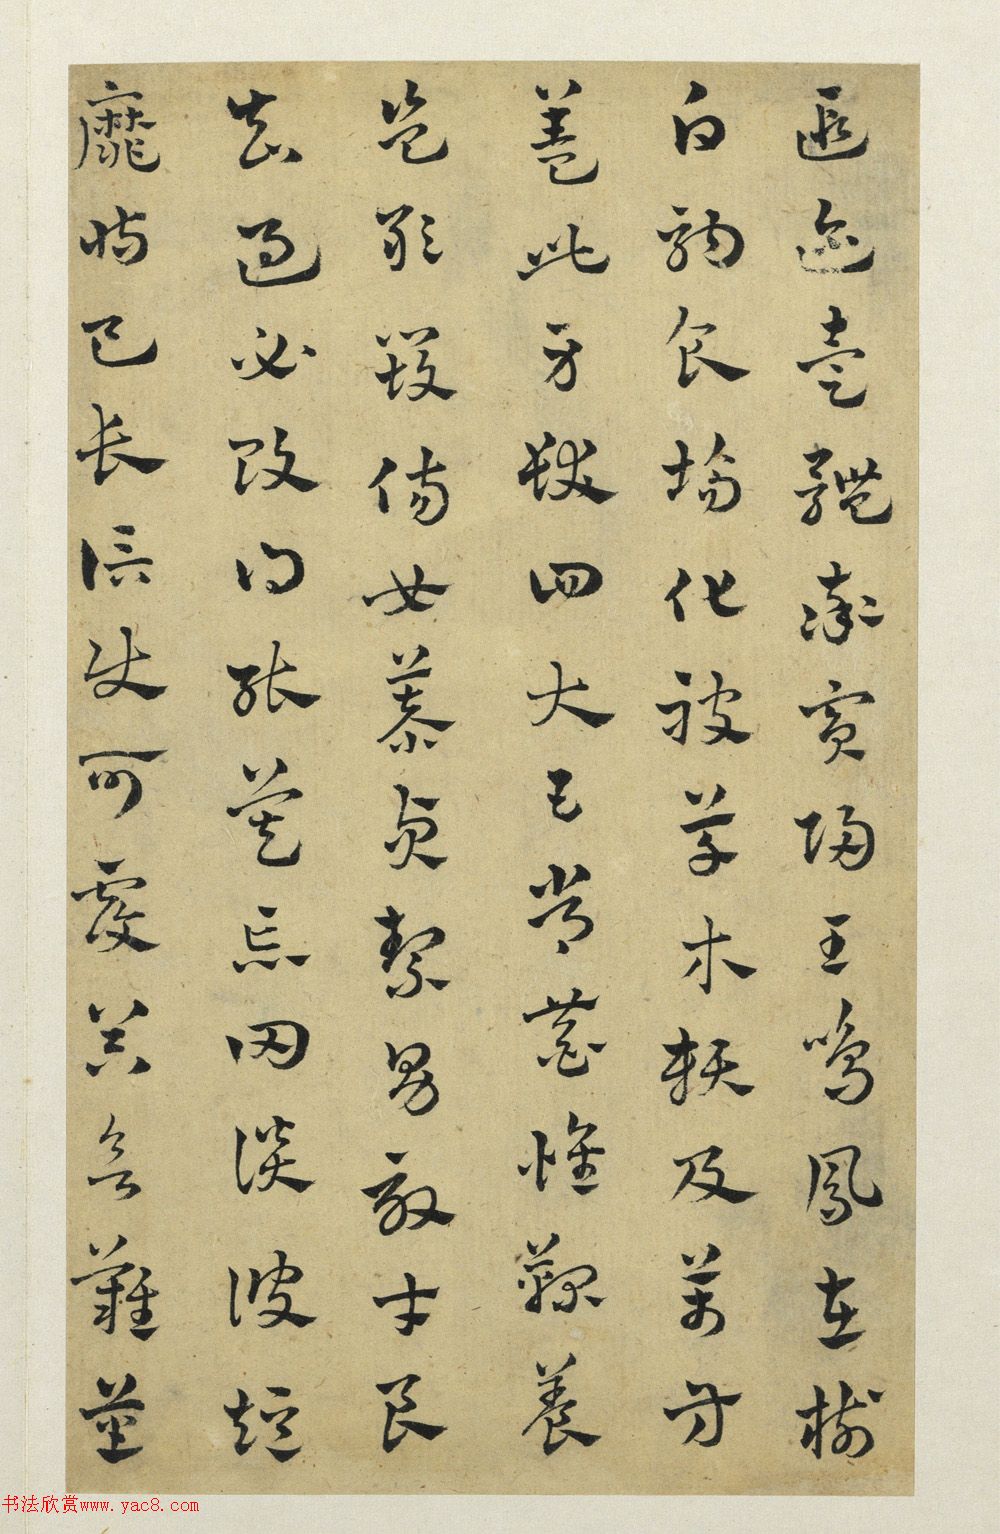 遐邇壹體率賓歸王鳴鳳在樹
白駒食場化被草木賴及萬方
蓋此身髮四大五常恭惟鞠養
豈敢毀傷女慕貞絜男效才良
知過必改得能莫忘罔談彼短
靡恃己長信使可覆器欲難量
书法欣赏www.yac8.com